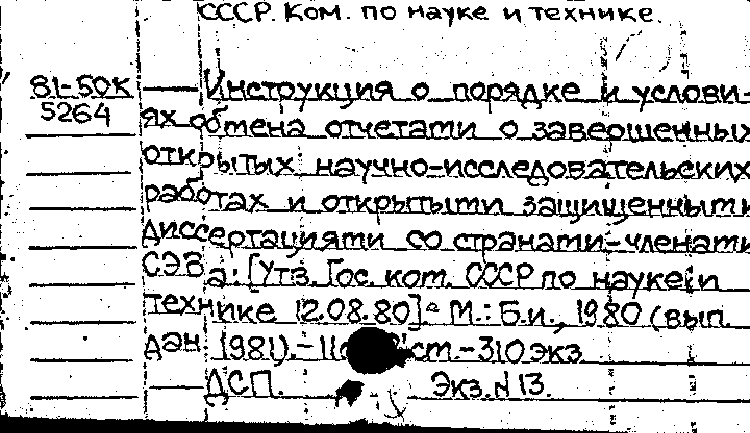 СССР. Ком. по науке и технике.
81-50К — Инструкция о порядке и услови-
5264 ях обмена отчетами о завершенных
открытых научно-исследовательских
работах и открытыми защищенными
диссертациями со странами-членами
СЭВа: [Утв. Гос. ком. СССР по науке и
технике 12.08.80]. М.: Б.и., 1980 (вып.
дан. 1981). - 310 экз.
— ДСП. Экз. N 13.